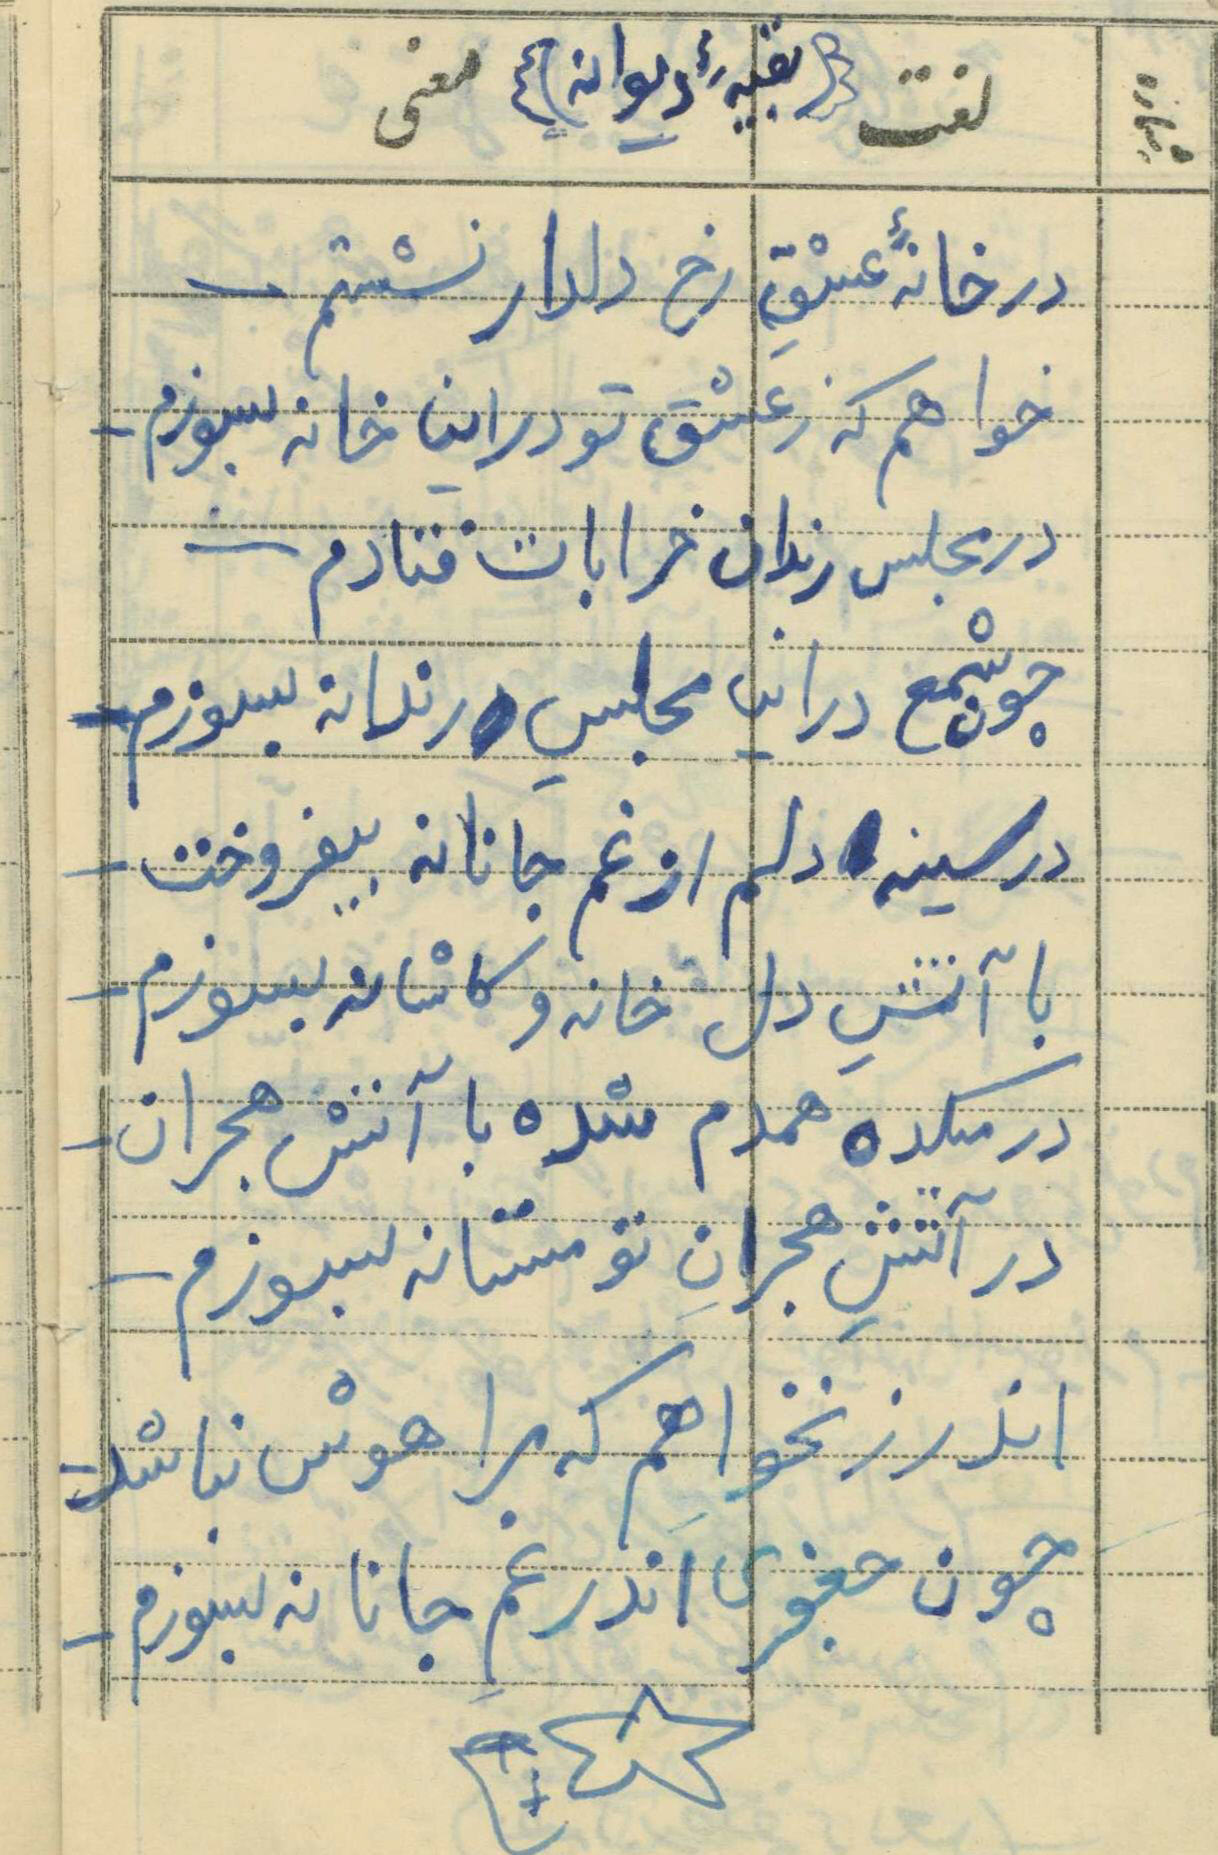 شماره لغت (بقیهٔ دیوانه) معنی
در خانهٔ عشقِ رخ دلدار نشستم -
خواهم که ز عشق تو در این خانه بسوزم -
در مجلس رندان خرابات فتادم -
چون شمع در این مجلسِ رندانه بسوزم -
در سینه دلم از غم جانانه بیفروخت -
با آتشِ دل خانه و کاشانه بسوزم -
در میکده همدم شده با آتش هجران -
در آتشِ هجرانِ تو مستانه بسوزم -
اندرز نخواهم که مرا هوش نباشد -
چون جعفری اندر غمِ جانانه بسوزم -